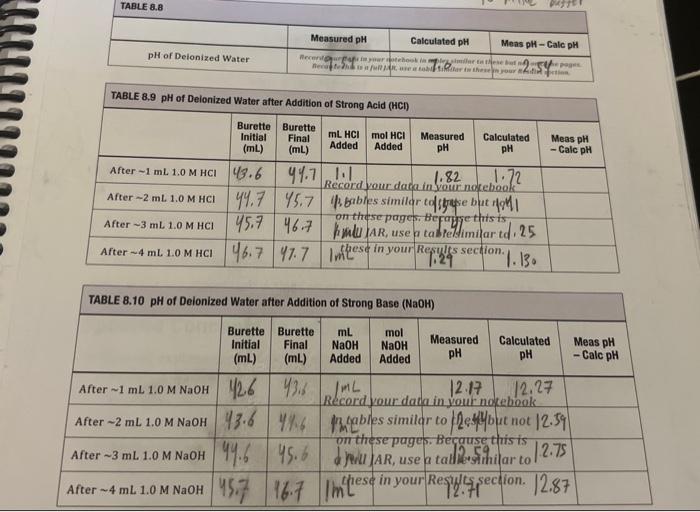 TABLE 8.8
Measured pH Calculated pH Meas pH – Calc pH
pH of Deionized Water
TABLE 8.9 pH of Deionized Water after Addition of Strong Acid (HCl)
Burette Initial (mL) Burette Final (mL) mL HCl Added mol HCl Added Measured pH Calculated pH Meas pH – Calc pH
After ~1 mL 1.0 M HCl 43.6 44.7 1.1 1.82 1.72
Record your data in your notebook
After ~2 mL 1.0 M HCl 44.7 45.7
in tables similar to these but not
After ~3 mL 1.0 M HCl 45.7 46.7
on these pages. Because this is
JAR, use a table similar to 1.25
After ~4 mL 1.0 M HCl 46.7 47.7 1mL 1.29 1.130
these in your Results section.
TABLE 8.10 pH of Deionized Water after Addition of Strong Base (NaOH)
Burette Initial (mL) Burette Final (mL) mL NaOH Added mol NaOH Added Measured pH Calculated pH Meas pH – Calc pH
After ~1 mL 1.0 M NaOH 42.6 43.6 1mL 12.17 12.27
Record your data in your notebook
After ~2 mL 1.0 M NaOH 43.6 44.6 12.59
in tables similar to but not
on these pages. Because this is
After ~3 mL 1.0 M NaOH 44.6 45.6 12.59 12.75
JAR, use a table similar to
After ~4 mL 1.0 M NaOH 45.7 46.7 1mL 12.71 12.87
these in your Results section.